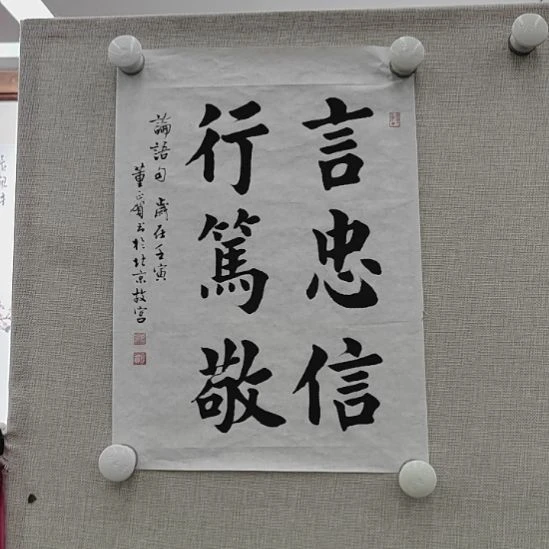 言忠信
行篤敬
論語句 歲在壬寅
董正賀書於北京故宮